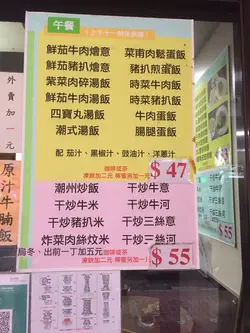 午餐
(上午十一時後供應)
鮮茄牛肉燴意 菜甫肉鬆蛋飯
鮮茄豬扒燴意 豬扒煎蛋飯
紫菜肉碎湯飯 時菜牛肉飯
鮮茄牛肉湯飯 時菜豬扒飯
四寶丸湯飯 牛肉蛋飯
潮式湯飯 腸腿蛋飯
配 茄汁、黑椒汁、豉油汁、洋蔥汁
咖啡或茶
凍飲加二元 檸蜜另加一元
$47
潮州炒飯 干炒牛意
干炒牛米 干炒牛河
干炒豬扒米 干炒三絲意
炸菜肉絲炆米 干炒三絲河
烏冬、出前一丁加五元
咖啡或茶
凍飲加二元 檸蜜另加一元
$55
外賣加一元
原汁牛腩飯